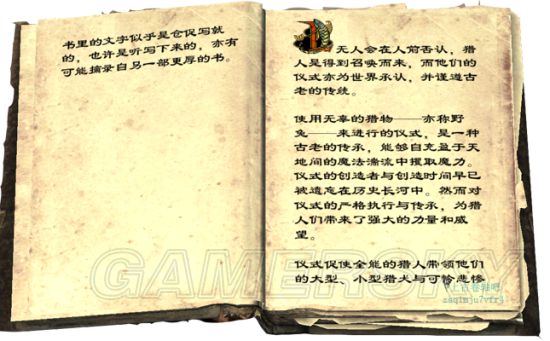 书里的文字似乎是仓促写就
的，也许是听写下来的，亦有
可能摘录自另一部更厚的书。
无人会在人前否认，猎
人是得到召唤而来，而他们的
仪式亦为世界承认，并谨遵古
老的传统。
使用无辜的猎物——亦称野
兔——来进行的仪式，是一种
古老的传承，能够自充盈于天
地间的魔法湍流中攫取魔力。
仪式的创造者与创造时间早已
被遗忘在历史长河中。然而对
仪式的严格执行与传承，为猎
人们带来了强大的力量和威
望。
仪式促使全能的猎人带领他们
的大型、小型猎犬与可怜悲惨
GAMERSKY
上古卷轴吧